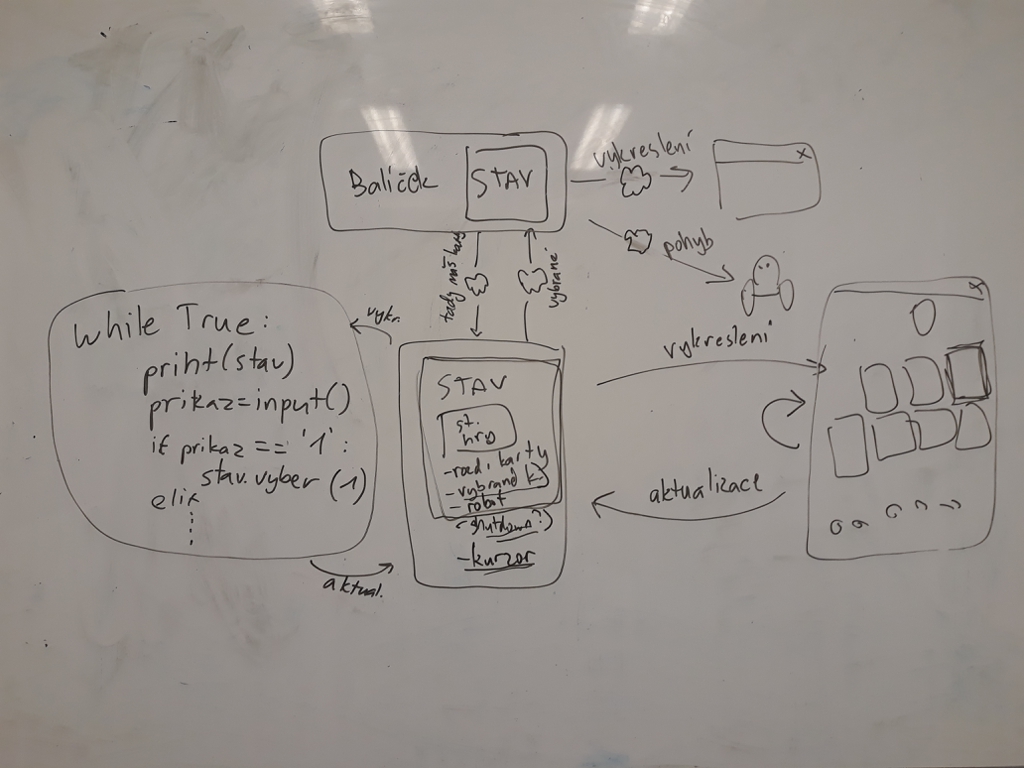 Balíček STAV
vykreslení
x
pohyb
tady máš karty
vybrané
vykr.
while True:
print(stav)
prikaz=input()
if prikaz == '1':
stav.vyber(1)
elif
aktual.
STAV
st.
hry
- rozd. karty
- vybrané K
- robot
(shutdown?)
- kurzor
vykreslení
aktualizace
x